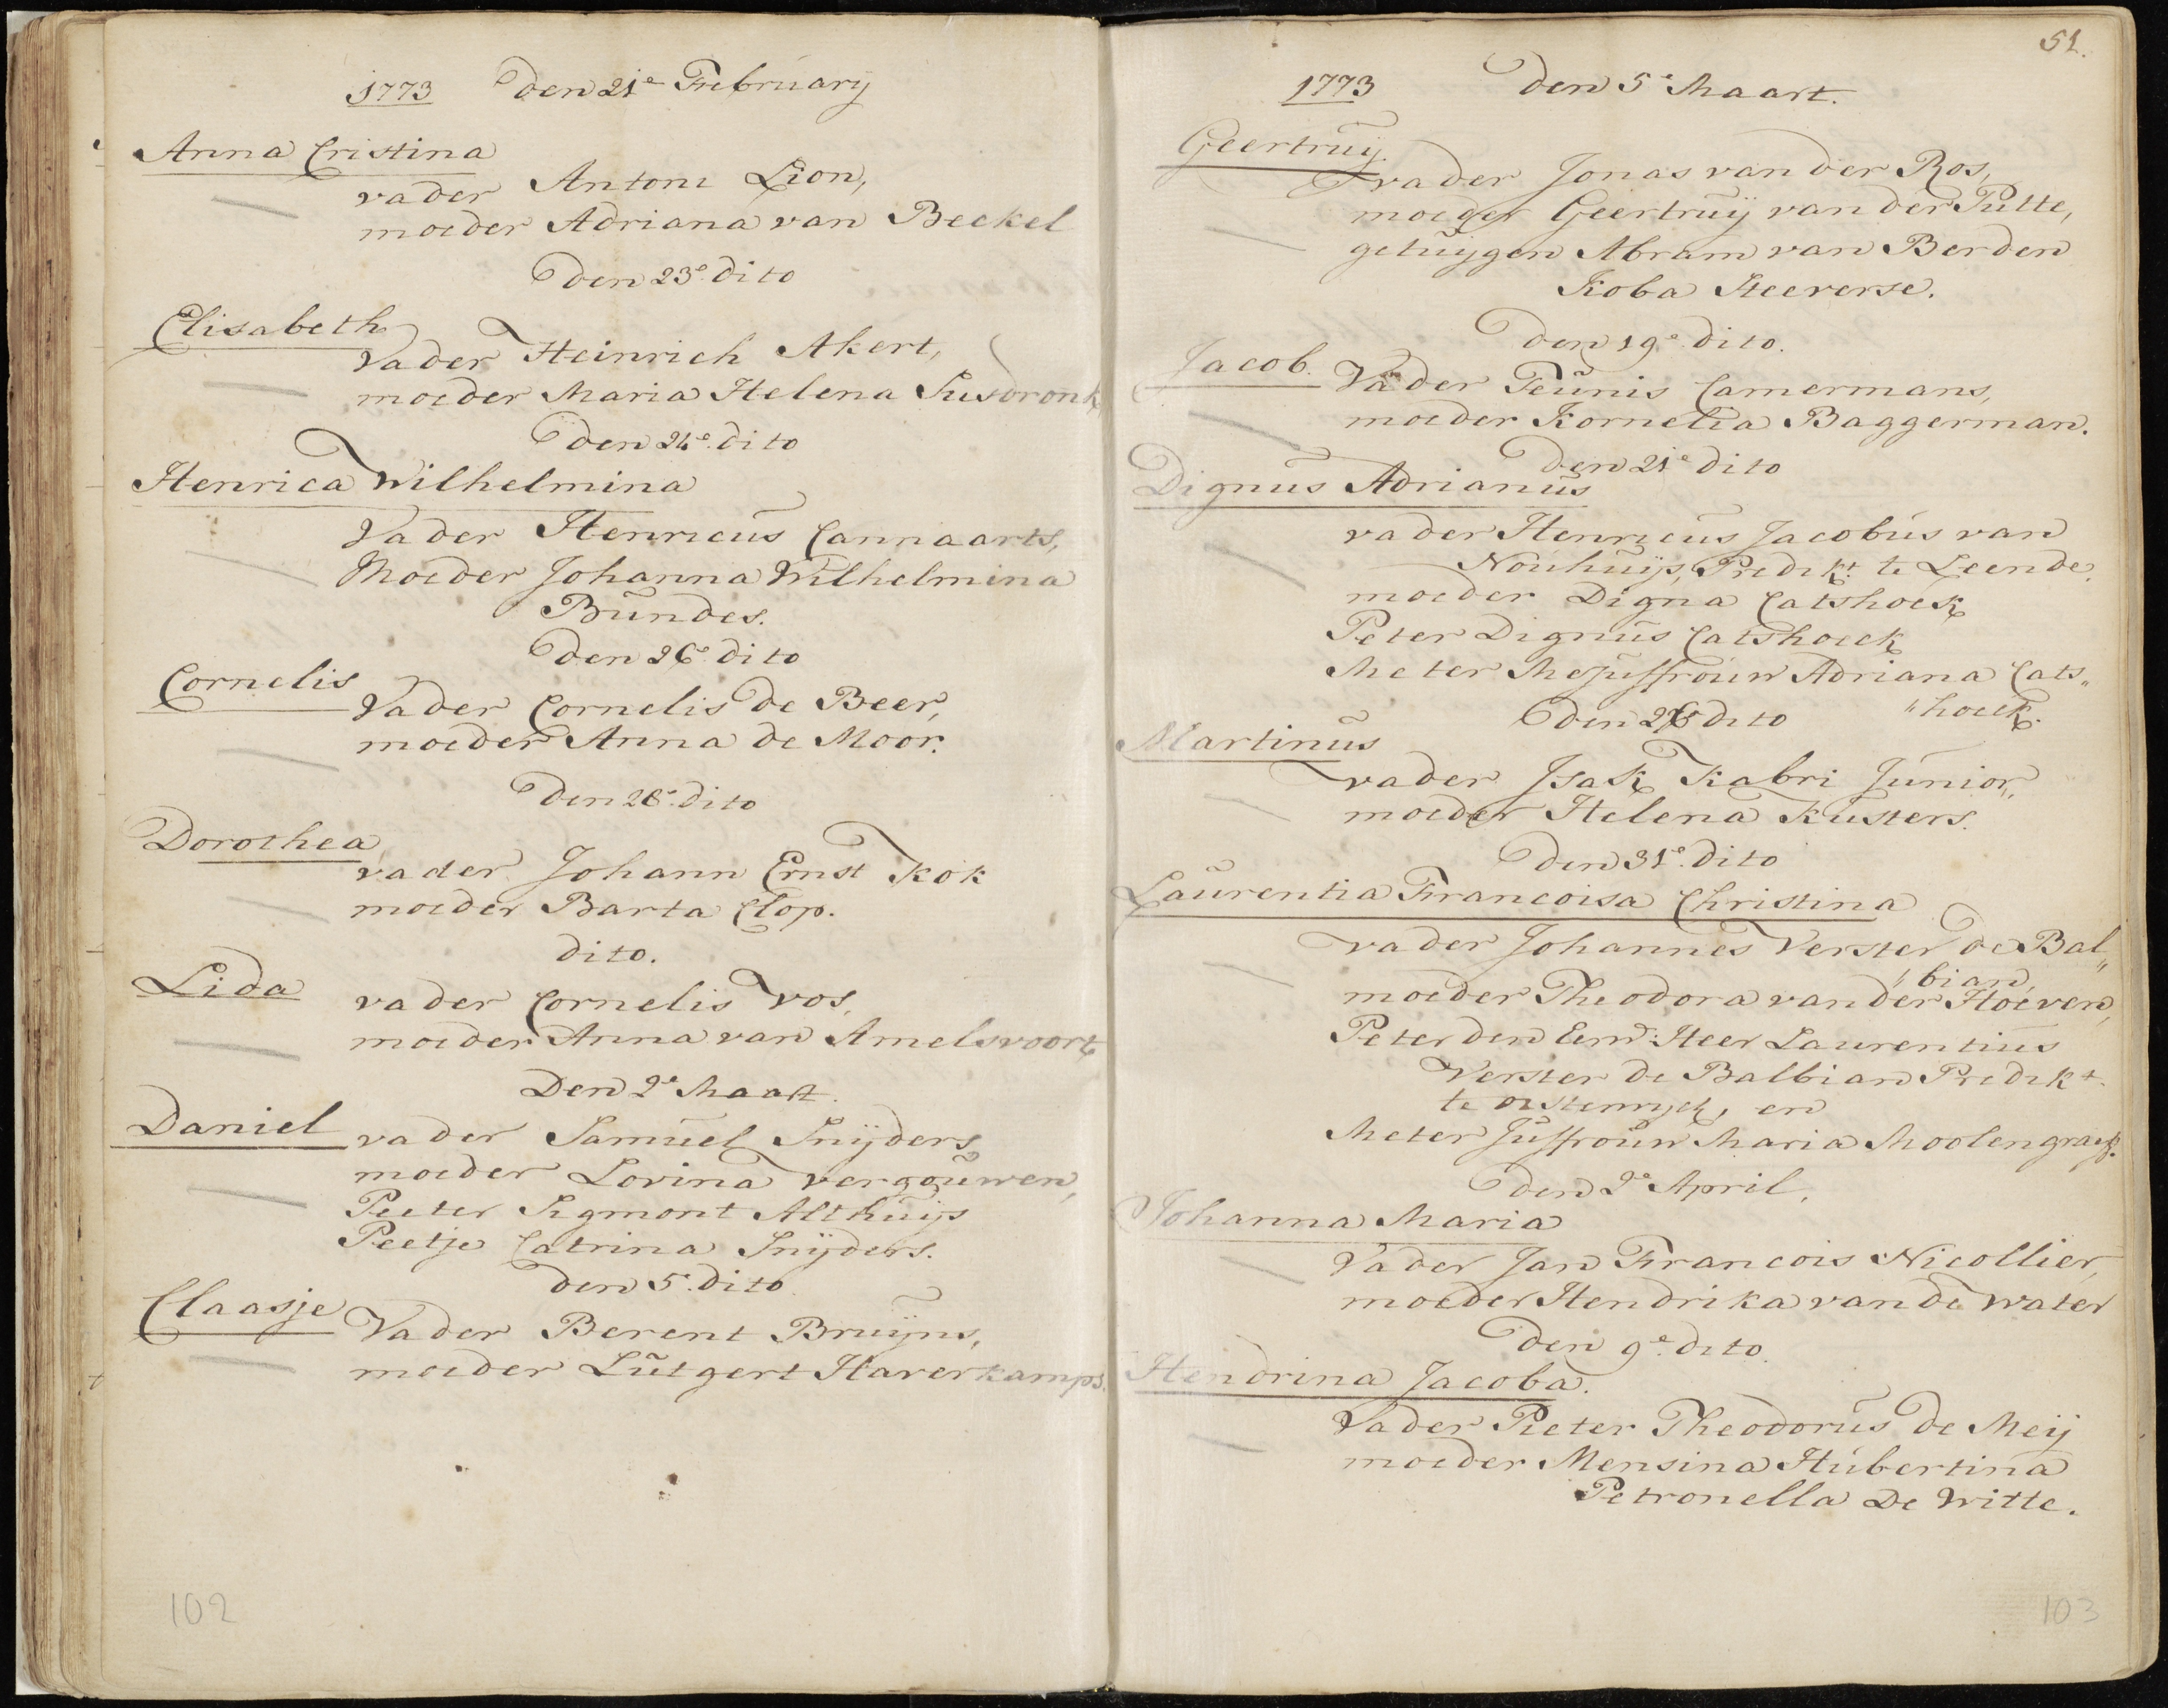 1773 den 21e February
Anna Cristina
vader Antoni Lion,
moeder Adriana van Beekel
den 23e dito
Elisabeth
Vader Heinrich Akert,
moeder Maria Helena Susdronk
den 24e dito
Henrica Wilhelmina
Vader Henricus Cannaarts,
Moeder Johanna Wilhelmina
Bundes.
den 26e dito
Cornelis
Vader Cornelis de Beer,
moeder Anna de Moor.
den 28e dito
Dorothea
vader Johann Ernst Kok
moeder Barta Clop.
dito.
Lida
vader Cornelis Vos,
moeder Anna van Amelsvoort
Den 2e Maart.
Daniel vader Samuel Snyders
moeder Lovina Vergouwen,
Peeter Sigmont Althuijs
Peetje Catrina Snijders.
den 5e dito
Claasje
Vader Berent Bruijns,
moeder Lutgert Haverkamps.
102
51.
1773 den 5e Maart.
Geertruij
vader Jonas van der Ros,
moeder Geertruij van der Putte,
getuijgen Abram van Berden
Koba Heeverse.
den 19e dito.
Jacob. Vader Teunis Camermans,
moeder Kornelia Baggerman.
den 21e dito
Dignus Adrianus
vader Henricus Jacobus van
Nouhuijs, Predikt. te Leende,
moeder Digna Catshoek
Peter Dignus Catshoeck
Meter Mejuffrouw Adriana Cats„
„hoeck.
den dito
Martinus
vader Isak Kabri Junior,
moeder Helena Kusters.
den 31e dito
Laurentia Francoisa Christina
vader Johannes Verster de Bal„
„bian,
moeder Theodora van der Hoeven,
Peter den Eerw: Heer Laurentius
Verster de Balbian Predikt.
te en
Meter Juffrouw Maria Moolengraef.
den 2e April,
Johanna Maria
Vader Jan Francois Nicollier,
moeder Hendrika van de Water
den 9e dito.
Hendrina Jacoba.
Vader Pieter Theodorus de Meij
moeder Mensina Hubertina
Petronella De Witte.
103